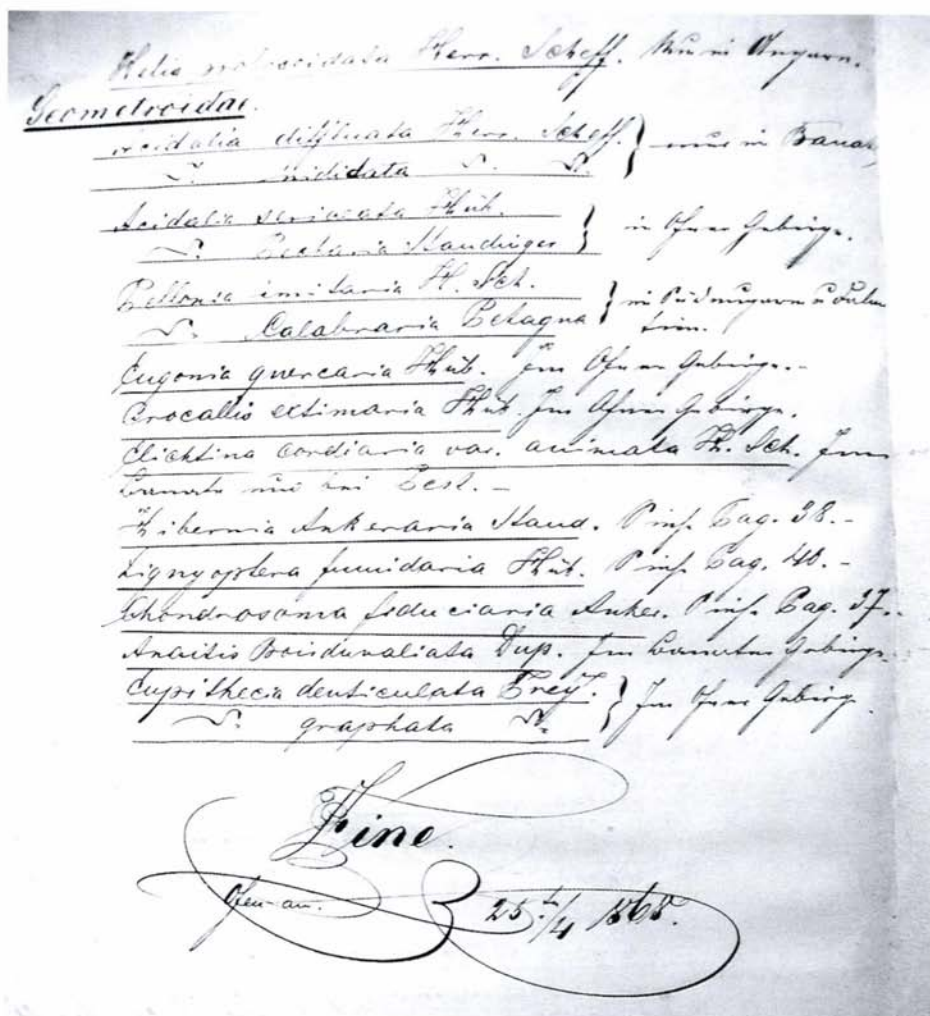 Herr. Scheff. Nur in Ungarn.
Geometroidae.
Acidalia diffluata Herr. Scheff. } nur in Banat,
" nididata " "
Acidalia sericeata Hüb. } in Ofner Gebirge.
" Pectaria Staudinger
Pellonia imitaria H. Sch. } in Südungarn u Dalma
" Calabraria Petagna tien.
Eugonia quercaria Hüb. Im Ofner Gebirge.-
Crocallis extimaria Hüb. Im Ofner Gebirge.
cordiaria var. animata H. Sch. Im
Banate und bei Pest. -
Hibernia Ankeraria Staud. Pag. 38.-
Lignyoptera fumidaria Hüb. Pag. 40.-
Chondrosoma fiduciaria Anker. Pag. 37.-
Anaitis Boisduvaliata Dup. Im Banater Gebirge.
Eupithecia denticulata Frey. } Im Ofner Gebirge.
" graphata "
Fine.
Ofen am. 25.t/4 1868.